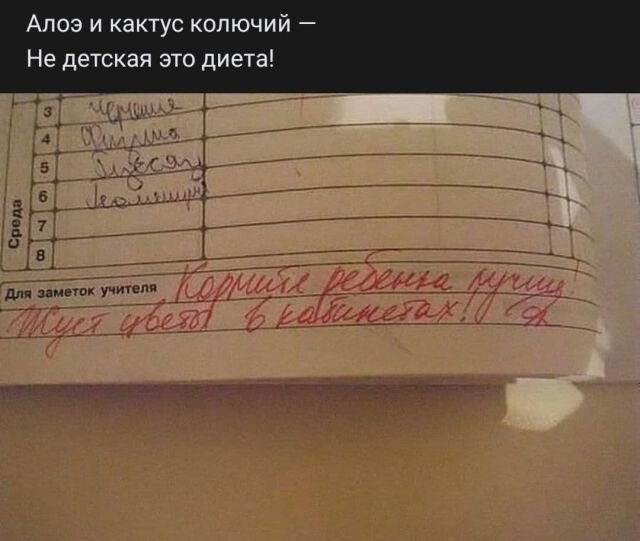 Алоэ и кактус колючий —
Не детская это диета!
3 Черчение
4 Физика
5
6 Геометрия
7
Среда
8
Для заметок учителя Кормите ребенка лучше!
Жует цветы в кабинетах!